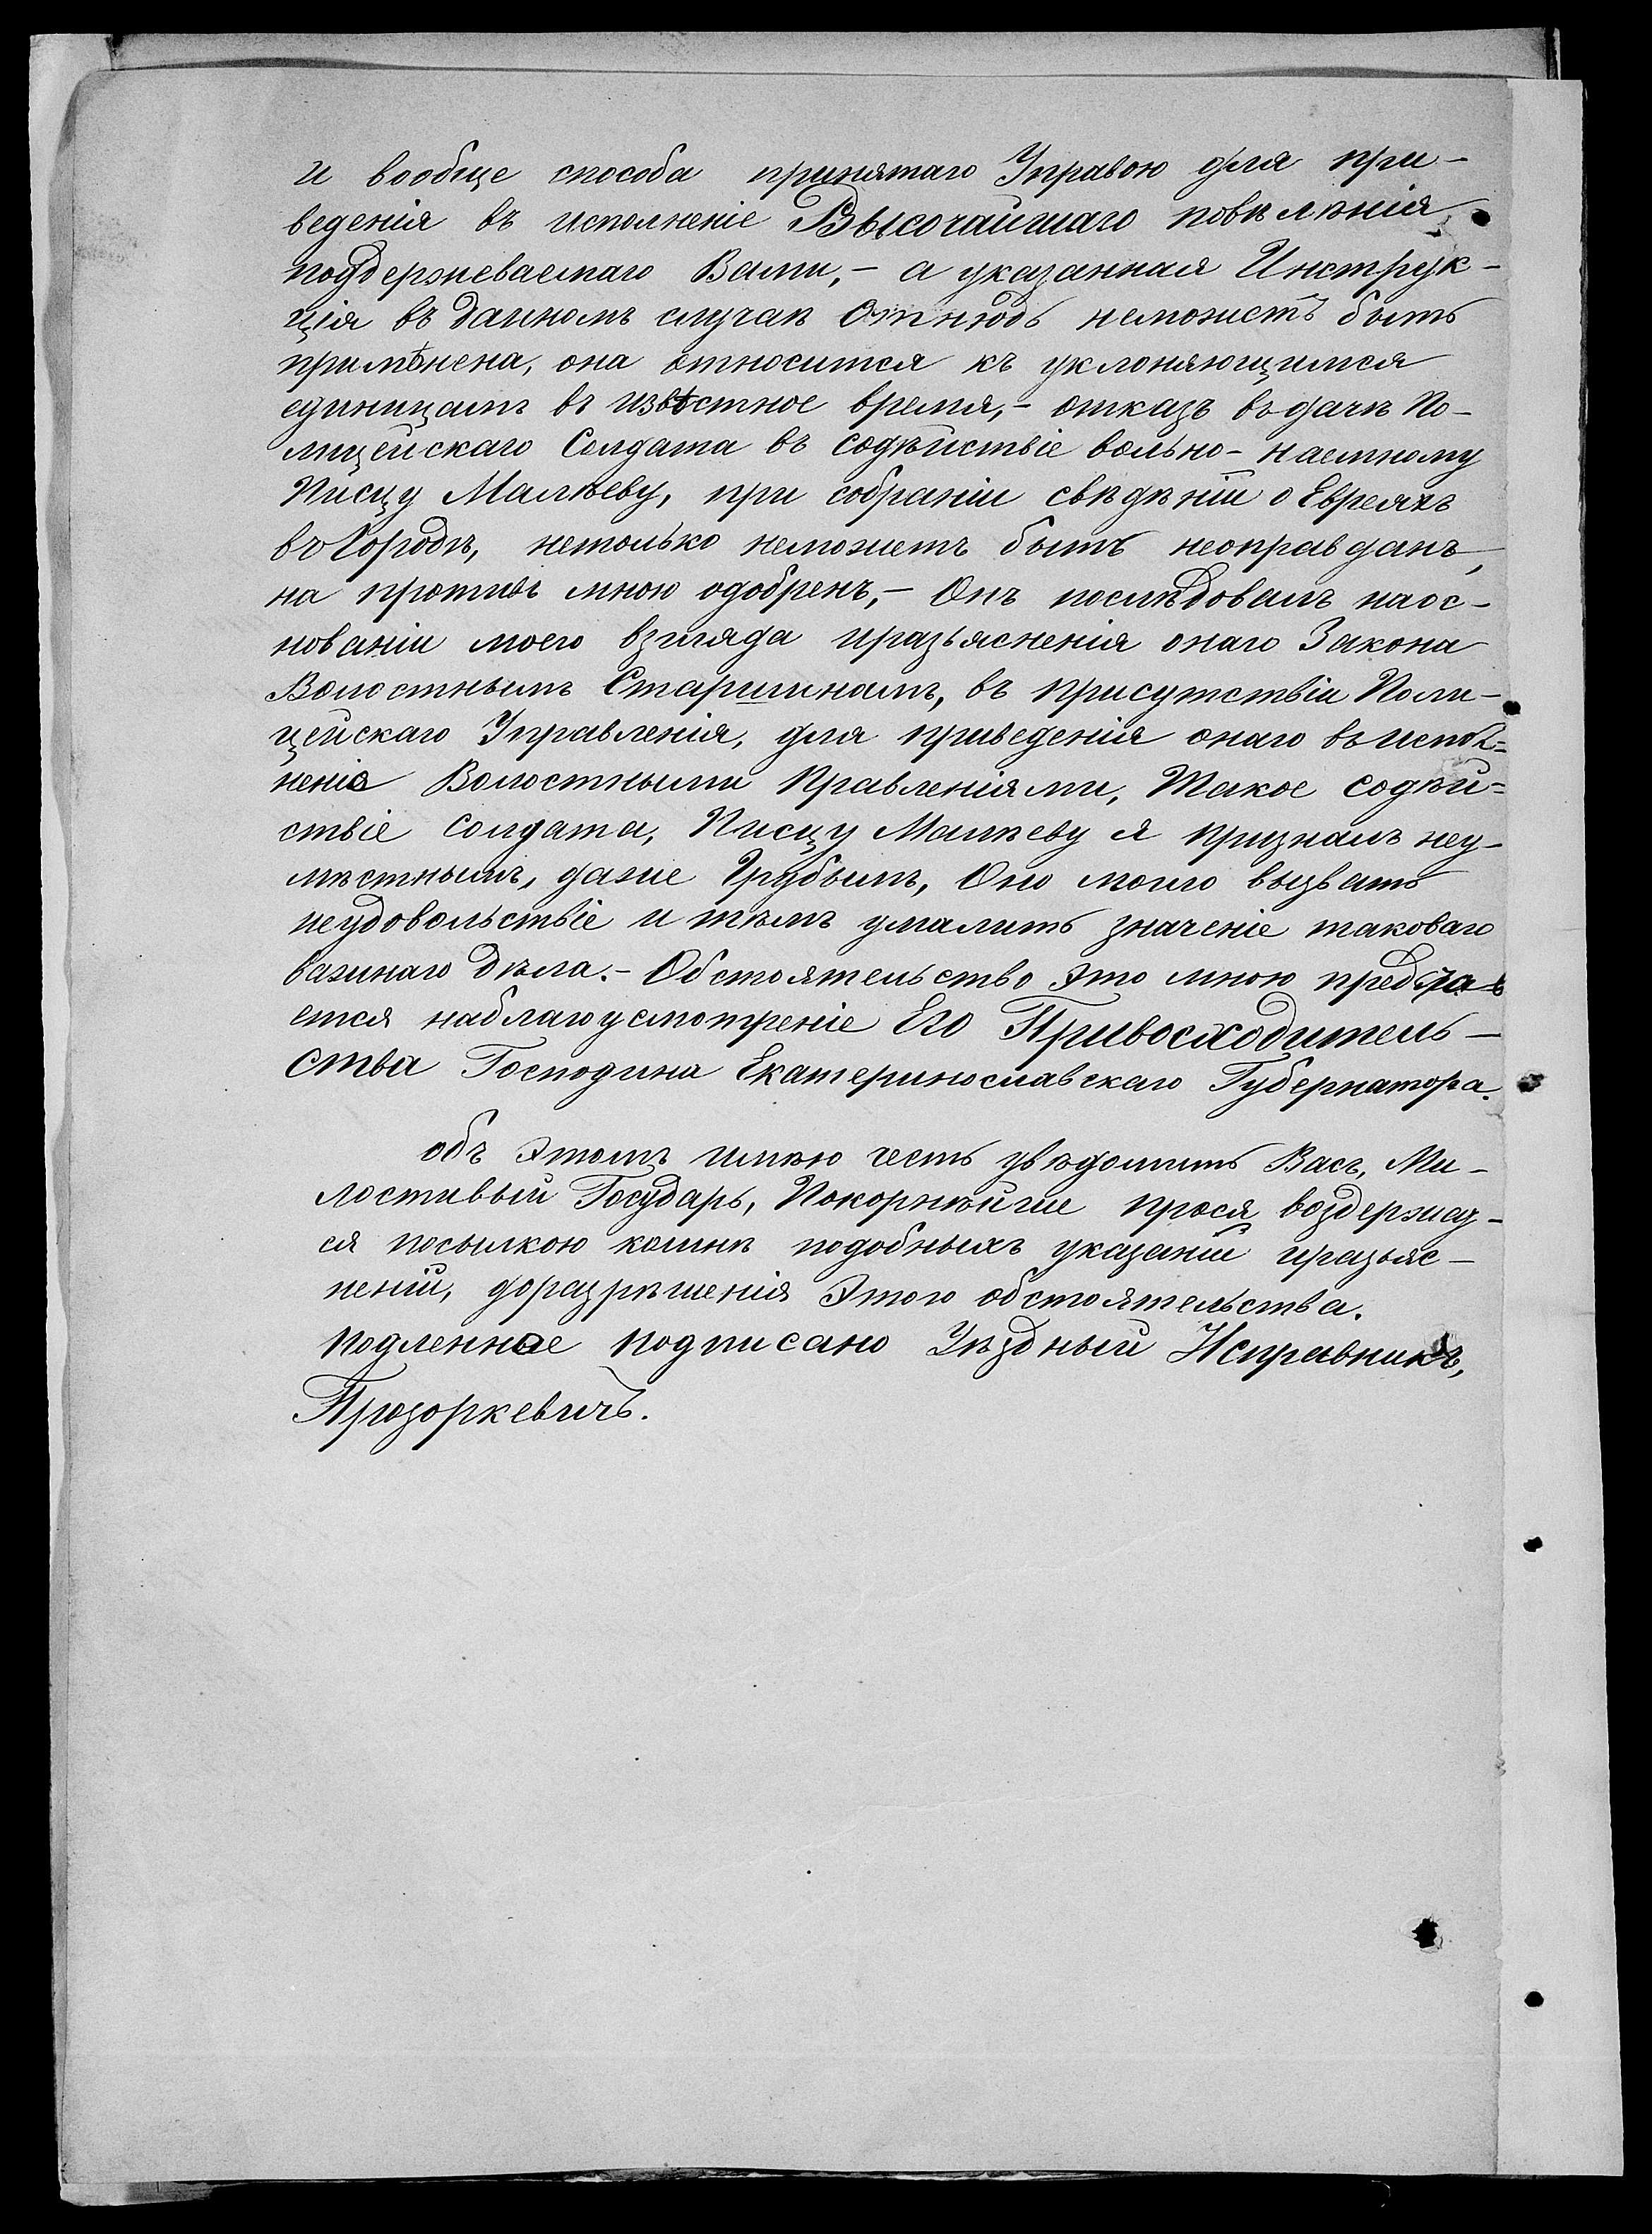 и вообще способа принятаго Управою для при-
веденія въ исполненіе Высочайшаго повѣлѣнія
поддержеваемаго Вами, - а указанная Инструк-
ція въ данномъ случаѣ Отнюдь неможетъ быть
примѣнена, она относится къ уклоняющимся
единицамъ въ извѣстное время, - отказъ въ дачѣ По-
лицейскаго Солдата въ содѣйствіе вольно-наемному
Писцу Малѣеву, при собраніи свѣдѣній о Евреяхъ
въ Городѣ, нетолько неможетъ быть неоправданъ,
на противъ мною одобренъ, - Онъ послѣдовалъ наос-
нованіи моего взгляда иразъясненія онаго Закона
Волостнымъ Старшинамъ, въ присутствіи Поли-
цейскаго Управленія, для приведенія онаго въ испол=
неніе Волостными Правленіями, Такое содѣй=
ствіе Солдата, Писцу Малѣеву я призналъ неу-
мѣстнымъ, даже Грубымъ, Оно могло вызвать
неудовольствіе и тѣмъ умалить значеніе таковаго
важнаго дѣла. - Обстоятельство это мною предста-
ется наблагоусмотреніе Его Привосходитель-
ства Господина Екатеринославскаго Губернатора.
объ Этомъ имѣю честь увѣдомить Васъ, Ми-
лостивый Государь, Покорнѣйше прося воздержат-
ся посылкою комнѣ подобныхъ указаній иразъяс-
неній, доразрѣшенія Этого обстоятельства.
подленное подписано Уѣздный Исправникъ,
Прозоркевичъ.